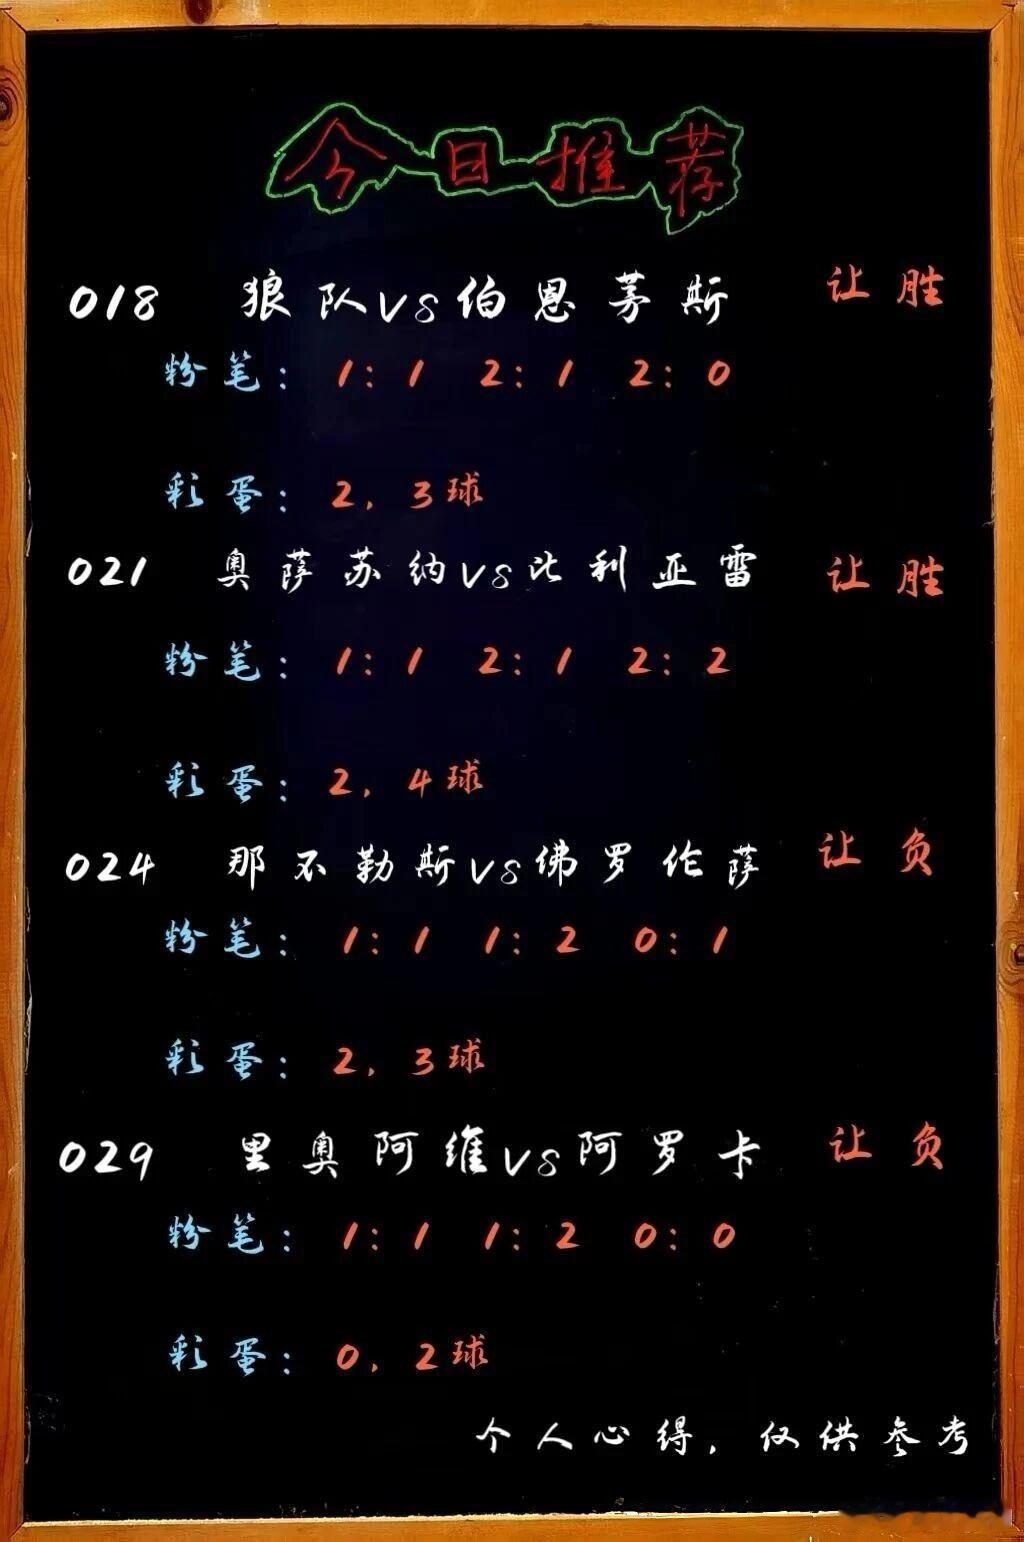 今日推荐
018 狼队vs伯恩茅斯 让胜
粉笔: 1:1 2:1 2:0
彩蛋: 2, 3球
021 奥萨苏纳vs比利亚雷 让胜
粉笔: 1:1 2:1 2:2
彩蛋: 2, 4球
024 那不勒斯vs佛罗伦萨 让负
粉笔: 1:1 1:2 0:1
彩蛋: 2, 3球
029 里奥阿维vs阿罗卡 让负
粉笔: 1:1 1:2 0:0
彩蛋: 0, 2球
个人心得, 仅供参考